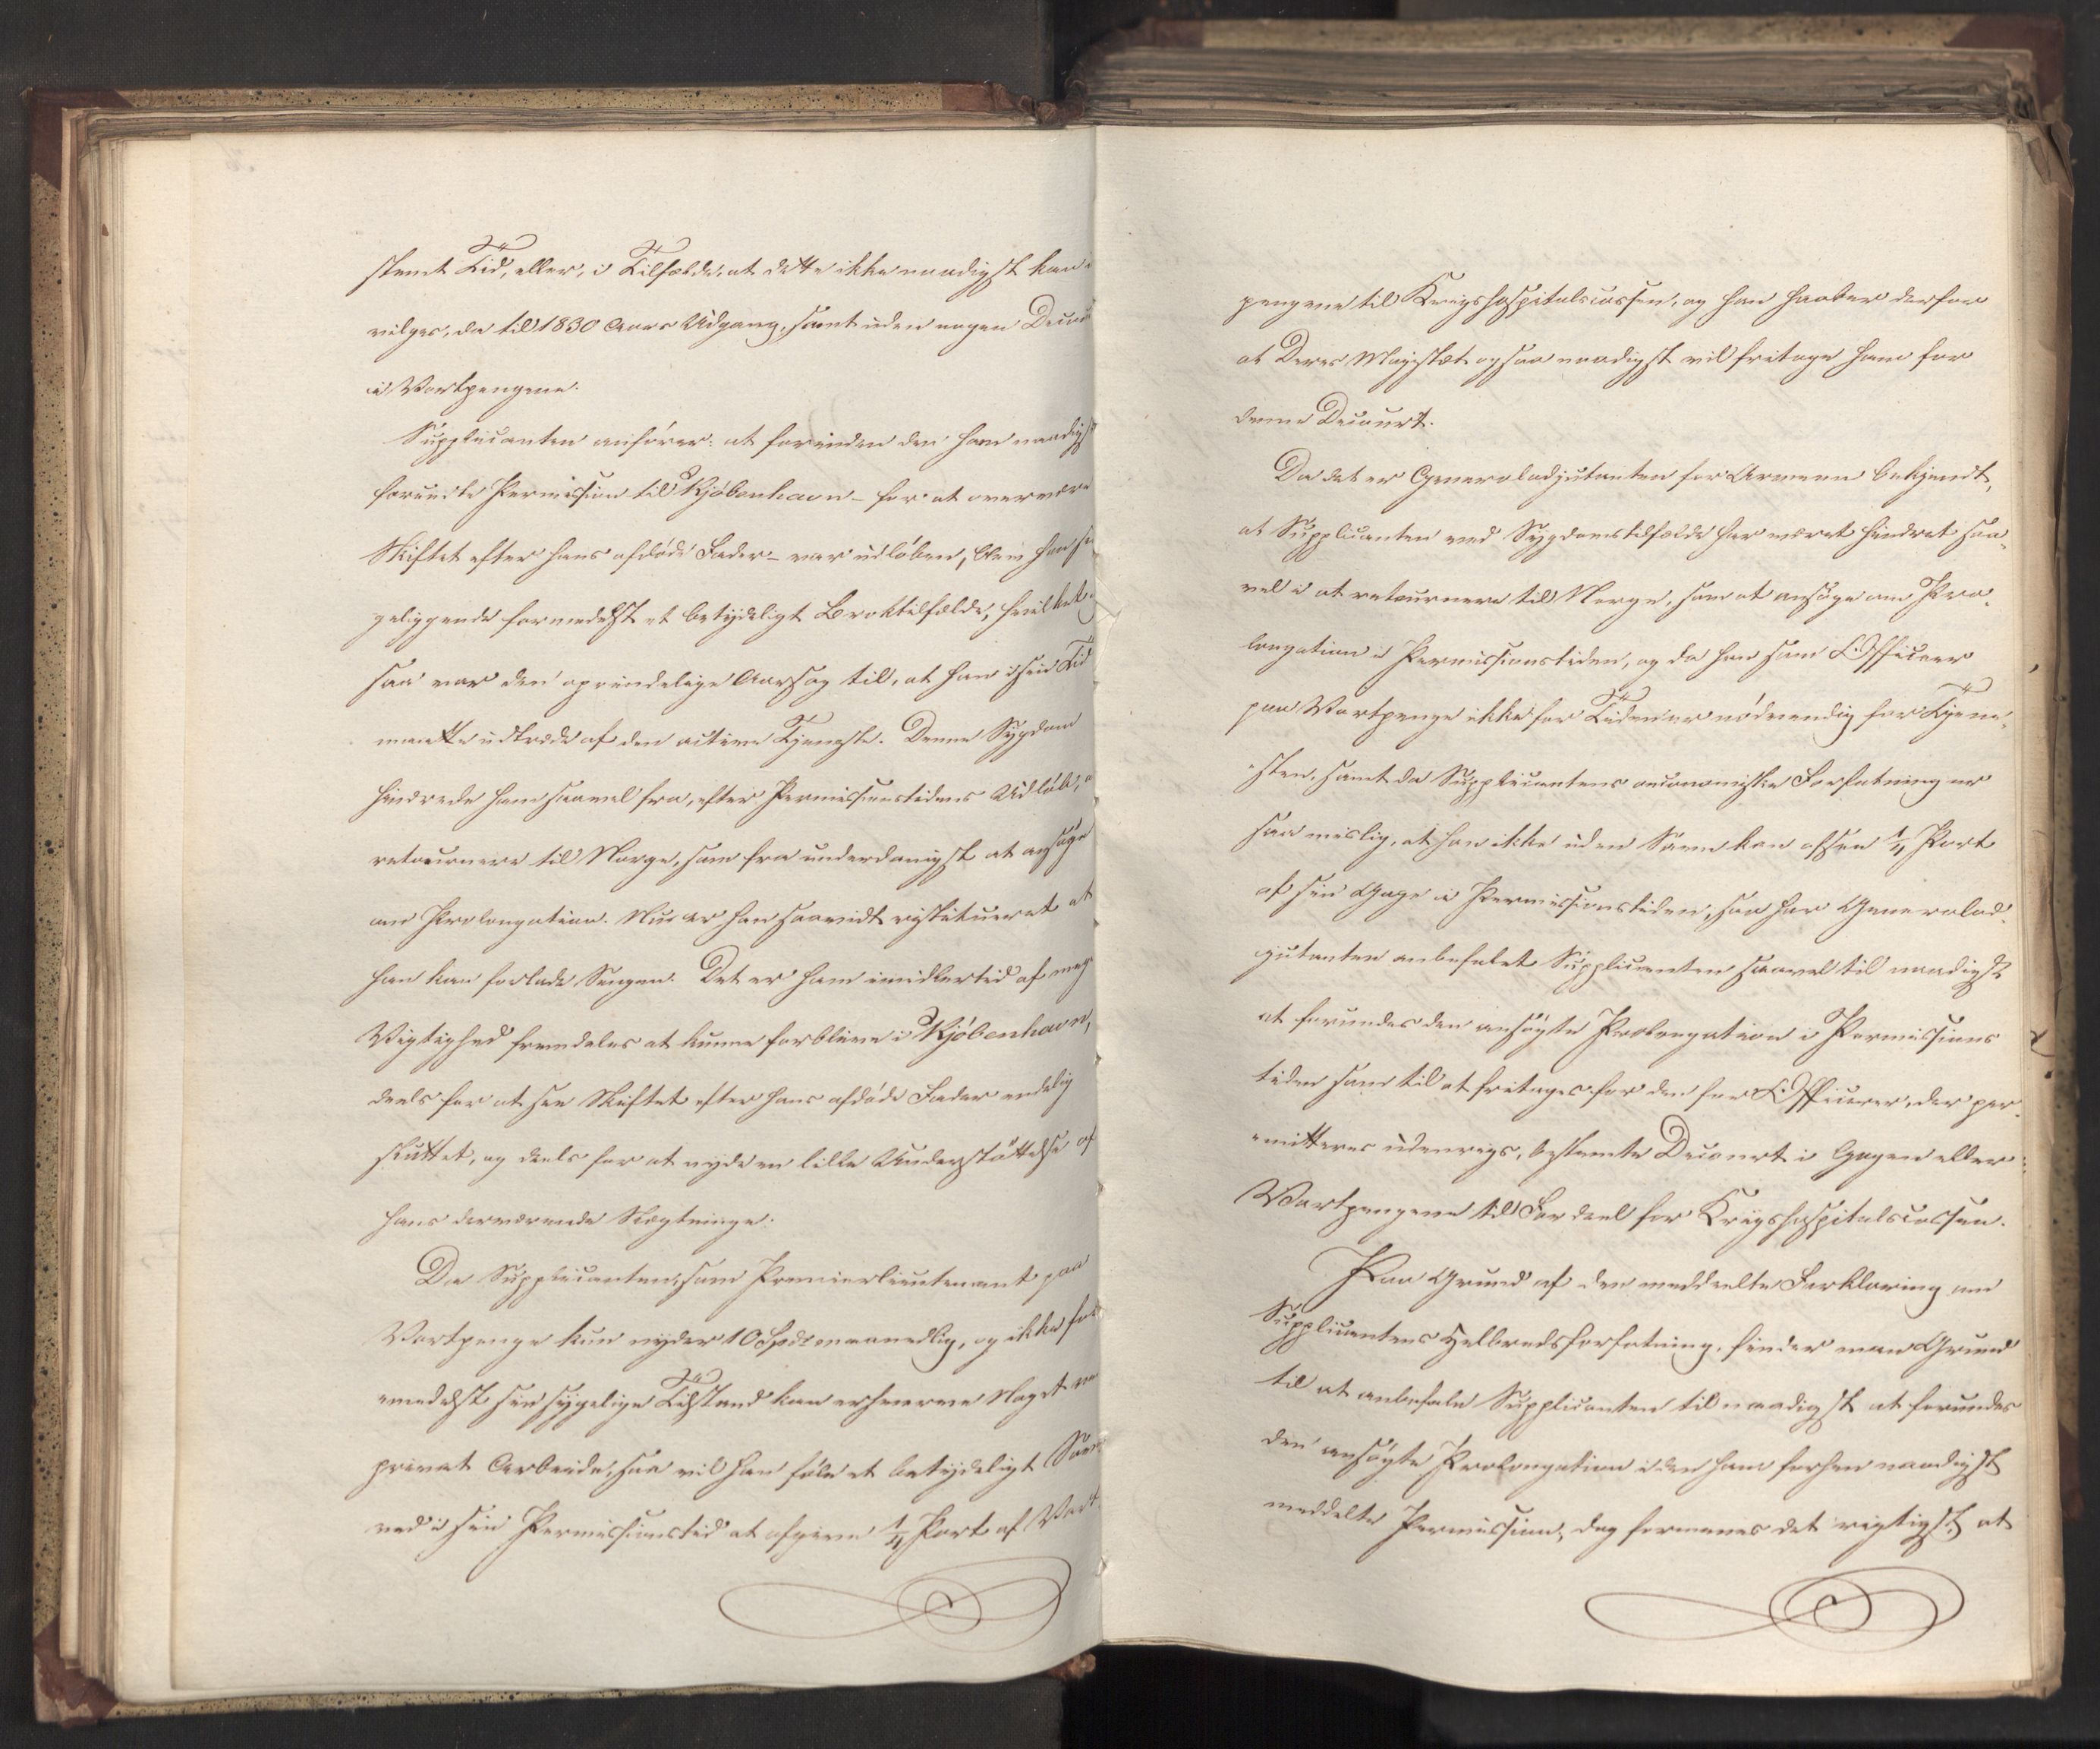 stemt Tid, eller, i Tilfælde, at dette ikke naadigst kan
vilges, da til 1830 Aars Udgang, samt uden nogen Decourt
i Vartpengene.
Supplicanten anfører: at forinden den ham naadigst
forundte Permission til Kjöbenhavn - for at overvære
Skiftet efter hans afdøde Fader - var udløben, blev han
geliggende formedelst et betydeligt Broktilfælde, hvilket
saa var den oprindelige Aarsag til, at han i sin Tid
maatte udtræde af den active Tjeneste. Denne Sygdom
hindrede ham saavel fra, efter Permissionstidens Udløb,
retournere til Norge, som fra underdanigst at ansøge
om Prolongation. Nu er han saavidt restitueret at
han kan forlade Sengen. Det er ham imidlertid af megen
Vigtighed fremdeles at kunne forblive i Kjöbenhavn,
deels for at see Skiftet efter hans afdøde Fader endelig
sluttet, og deels for at nyde en lille Understøttelse af
hans derværende Slægtninge.
Da Supplicanten, som Premierlieutenant paa
Vartpenge kun nyder 10 Spdr maanedlig, og ikke for
medelst sin sygelige Tilstand kan erhverve Noget ved
privat Arbeide, saa vil han føle et betydeligt Savn
ved i sin Permissionstid at afgive 1/4 Part af Vart
pengene til Krigshospitalscassen, og han haaber derfor
at Deres Majestæt ogsaa naadigst vil fritage ham for
denne Decourt.
Da det er Generaladjutanten for Armeen bekjendt,
at Supplicanten ved Sygdomstilfælde har været hindret saa-
vel i at retournere til Norge, som at ansøge om Pro-
longation i Permissionstiden, og da han som Officeer
paa Vartpenge ikke for Tiden er nødvendig for Tjene-
sten, samt da Supplicantens oeconomiske Forfatning er
saa mislig, at han ikke uden Savn kan afsee 1/4 Part
af sin Gage i Permissionstiden, saa har Generalad-
jutanten anbefalet Supplicanten saavel til naadigst
at forundes den ansøgte Prolongation i Permissions
tiden som til at fritages for den for Officerer, der per-
mitteres udenrigs, bestemte Decourt i Gagen eller
Vartpengene til Fordeel for Krigshospitalscassen.
Paa Grund af den meddeelte Forklaring om
Supplicantens Helbredsforfatning, finder man Grund
til at anbefale Supplicanten til naadigst at forundes
den ansøgte Prolongation i den ham forhen naadigst
meddelte Permission, dog formenes det rigtigst, at